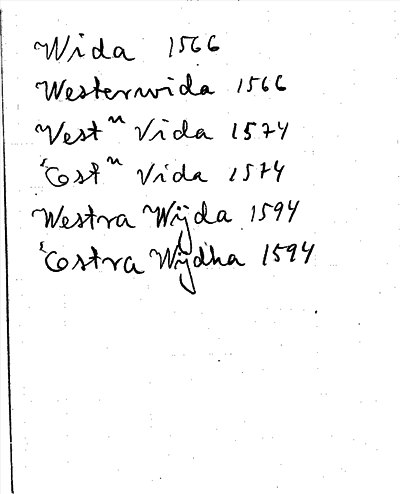 Wida 1566
Westerwida 1566
Vestn Vida 1574
Östn Vida 1574
Westra Wijda 1594
Östra Wijdha 1594